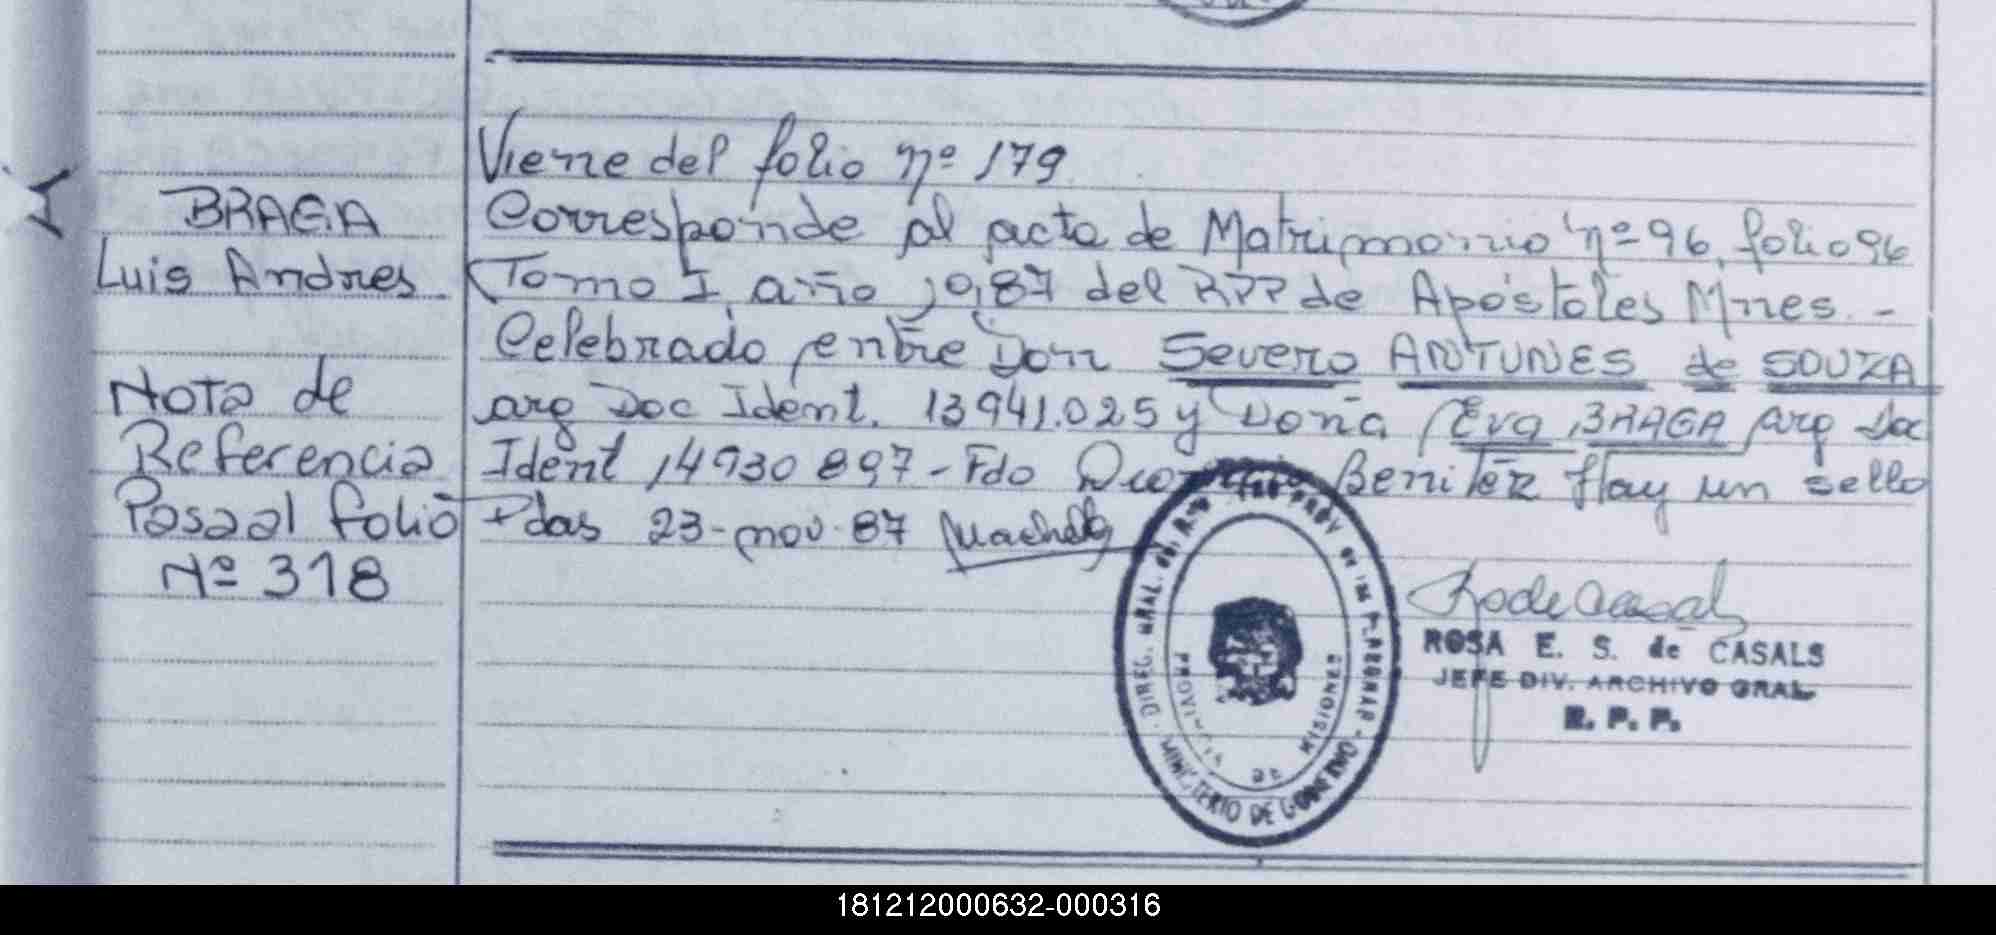 BRAGA
Luis Andres
Nota de
Referencia
Pasa al folio
Nº 318
Viene del folio nº 179
Corresponde al acta de Matrimonio nº 96, folio 96
Tomo I año 1987 del RPP de Apóstoles Mnes. -
Celebrado entre Don Severo ANTUNES de SOUZA
arg Doc Ident. 13941.025 y Doña Eva BRAGA arg Doc
Ident 14930897 - Fdo Benitez Hay un sello
Pdas 23-nov-87
DIREC. GRAL. del PROV de las PERSONAS - MINISTERIO DE GOBIERNO
PROVINCIA DE MISIONES
ROSA E. S. de CASALS
JEFE DIV. ARCHIVO GRAL
R. P. P.
181212000632-000316